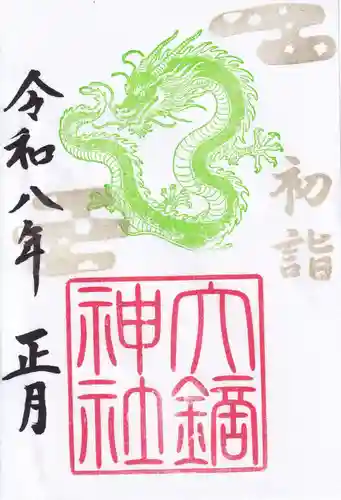 初詣
令和八年 正月
大鏑
神社